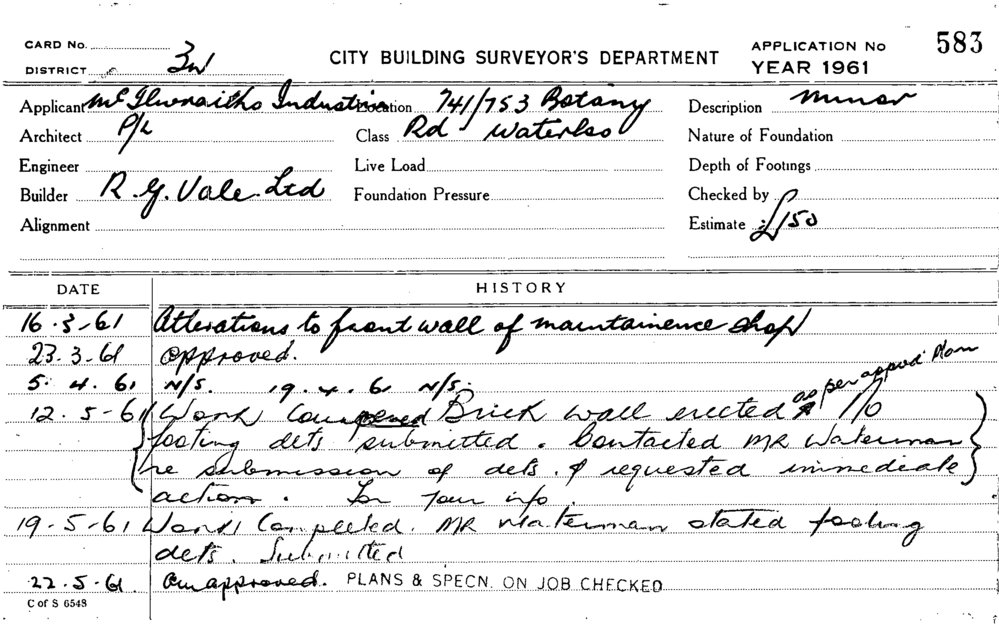 CARD No.
DISTRICT 3W
CITY BUILDING SURVEYOR'S DEPARTMENT
APPLICATION No 583
YEAR 1961
Applicant McIlwraiths Industries
Location 741/753 Botany
Description Minor
Architect P/L
Class Rd Waterloo
Nature of Foundation
Engineer
Live Load
Depth of Footings
Builder R.G. Vale Ltd
Foundation Pressure
Checked by
Alignment
Estimate £150
DATE HISTORY
16.3.61 Alterations to front wall of maintainence shop
23.3.61 approved.
5.4.61 N/S. 19.4.61 N/S.
as per appvd Plan
12.5.61 Work Commenced Brick wall erected No
footing dets submitted. Contacted MR Waterman
re submission of dets. & requested immediate
action. For your info.
19-5-61 Work Completed. MR Waterman stated footing
dets. Submitted
22.5.61 approved. PLANS & SPECN. ON JOB CHECKED
C of S 6548